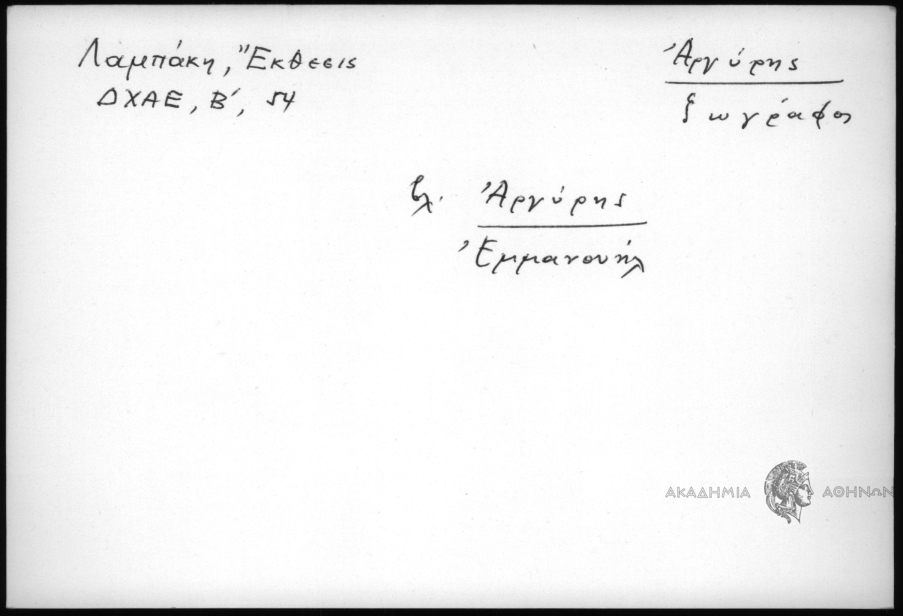 Λαμπάκη, Ἔκθεσις
ΔΧΑΕ, Β΄, 54
Ἀργύρης
ζωγράφος
βλ. Ἀργύρης
Ἐμμανουήλ
ΑΚΑΔΗΜΙΑ ΑΘΗΝΩΝ